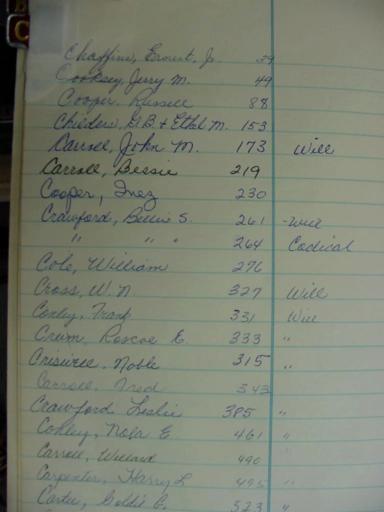 Chaffins, Ernest, Jr. 39
Cooksey, Jerry M. 49
Cooper, Russell 88
G.B. + Ethel M. 153
Carroll, John M. 173 Will
Carroll, Bessie 219
Cooper, Inez 230
Crawford, Bettie S. 261 - Will
" " " 264 Codical
Cole, William 276
Cross, W. N. 327 Will
Conley, Frank 331 Will
Crum, Roscoe E. 333 "
Noble 315 "
Carroll, Fred 343
Crawford, Leslie 385 "
Conley, Nola E. 461 "
Carroll, Willard 490
Carpenter, Harry L. 495 "
Carter, Goldie P. 523 "